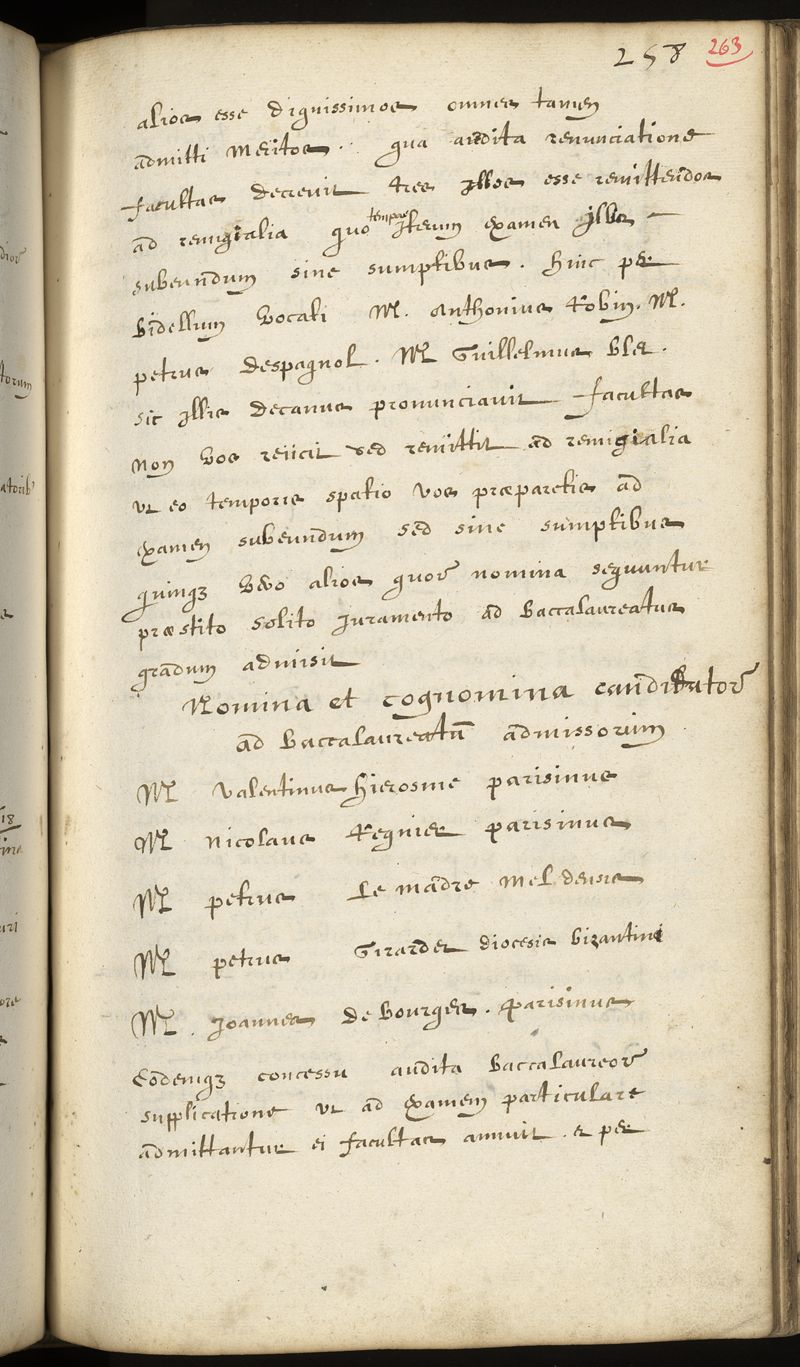 258 263
alios esse dignissimos omnes tamen
admitti meritos. qua audita renunciatione
facultas decrevit tres illos esse remittendos
ad remigialia quo tempore iterum examen illis
subeundum sine sumptibus. hinc per
bidellum vocati M. Anthonius Robin. M.
petrus despagnol. M Guillelmus Bler.
sic illis decanus pronunciavit facultas
non vos reiicit sed remittit ad remigialia
ut eo temporis spatio vos præparetis ad
examen subeundum sed sine sumptibus
quinqz vero alios quor nomina sequuntur
præstito solito iuramento ad Baccalaureatus
gradum admisit
Nomina et cognomina candidator
ad Baccalaureatū admissorum
M valentinus Hierosme parisinus
M nicolaus Regnier parisinus
M petrus Le madre meldensis
M petrus Girardet diocesis bizantini
M. Joannes de Bourges. parisinus
Eodemqz concessu audita Baccalaureor
supplicatione ut ad examem particulare
admittantur ei facultas annuit. & per